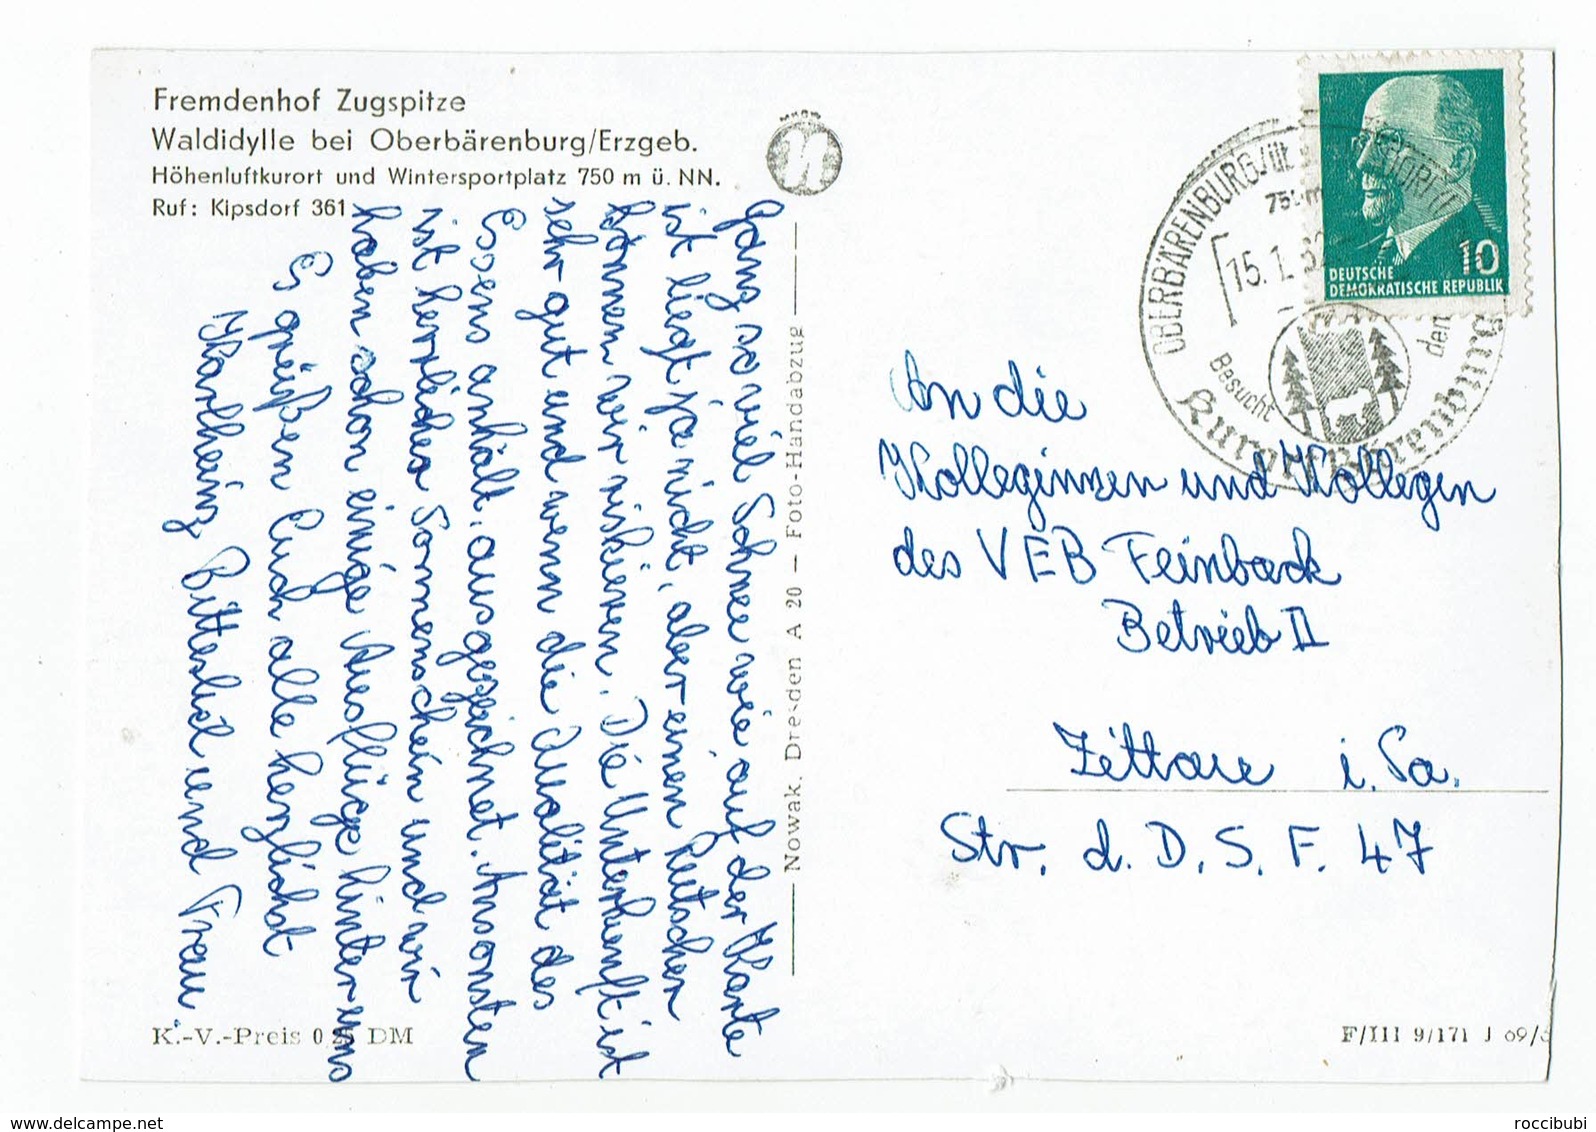 Fremdenhof Zugspitze
Waldidylle bei Oberbärenburg/Erzgeb.
Höhenluftkurort und Wintersportplatz 750 m ü. NN.
Ruf: Kipsdorf 361
Ganz so viel Schnee wie auf der Karte
ist liegt ja nicht, aber einen Rutscher
können wir riskieren. Die Unterkunft ist
sehr gut und wenn die Qualität des
Essens anhält, ausgezeichnet. Ansonsten
ist herrlicher Sonnenschein und wir
haben schon einige Ausflüge hinter uns
Es grüßen Euch alle herzlichst
Karlheinz Bitterlich und Frau.
K.-V.-Preis 0,25 DM
Nowak, Dresden A 20 – Foto-Handabzug
OBERBÄRENBURG/üb.
75. m
15.1.
Besucht den
Kurort Bärenburg
10
DEUTSCHE
DEMOKRATISCHE REPUBLIK
An die
Kolleginnen und Kollegen
des VEB Feinback
Betrieb II
Zittau i. Sa.
Str. d. D. S. F. 47
F/III 9/171 J 69/
www.delcampe.net
roccibubi